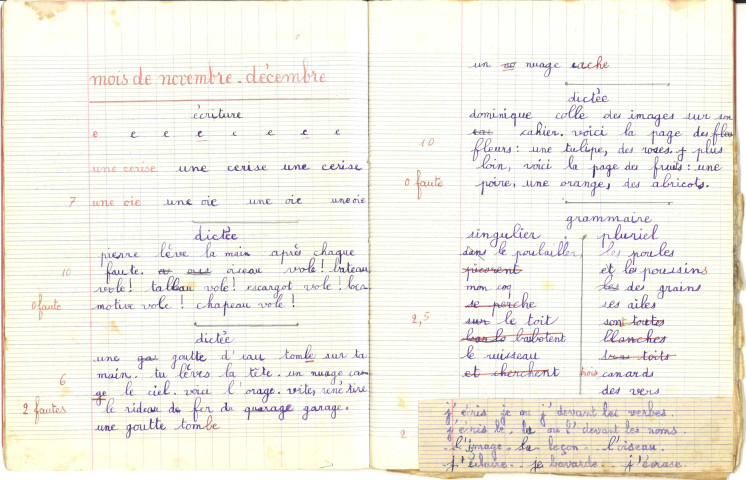 mois de novembre - décembre
écriture
e e e e e e e e
une cerise une cerise une cerise
7 une oie une oie une oie une oie
dictée
pierre lève la main après chaque
10 faute. oiseau vole! bateau
vole! tableau vole! escargot vole! loco
0 faute motive vole! chapeau vole!
dictée
une goutte d'eau tombe sur ta
main. tu lèves la tête. un nuage
6 le ciel. voici l'orage. vite, rené tire
2 fautes le rideau de fer du garage.
une goutte tombe
un nuage cache
dictée
dominique colle des images sur son
cahier. voici la page des
10 fleurs: une tulipe, des roses. plus
loin, voici la page des fruits: une
0 faute poire, une orange, des abricots.
grammaire
singulier pluriel
dans le poulailler les poules
picorent et les poussins
mon coq des grains
se perche ses ailes
2,5 sur le toit sont toutes
barbotent blanches
le ruisseau toits
et cherchent trois canards
des vers
j'écris je ou j' devant les verbes.
2 j'écris le, la ou l' devant les noms.
l'image la leçon l'oiseau.
j'éclaire je bavarde j'écrase.